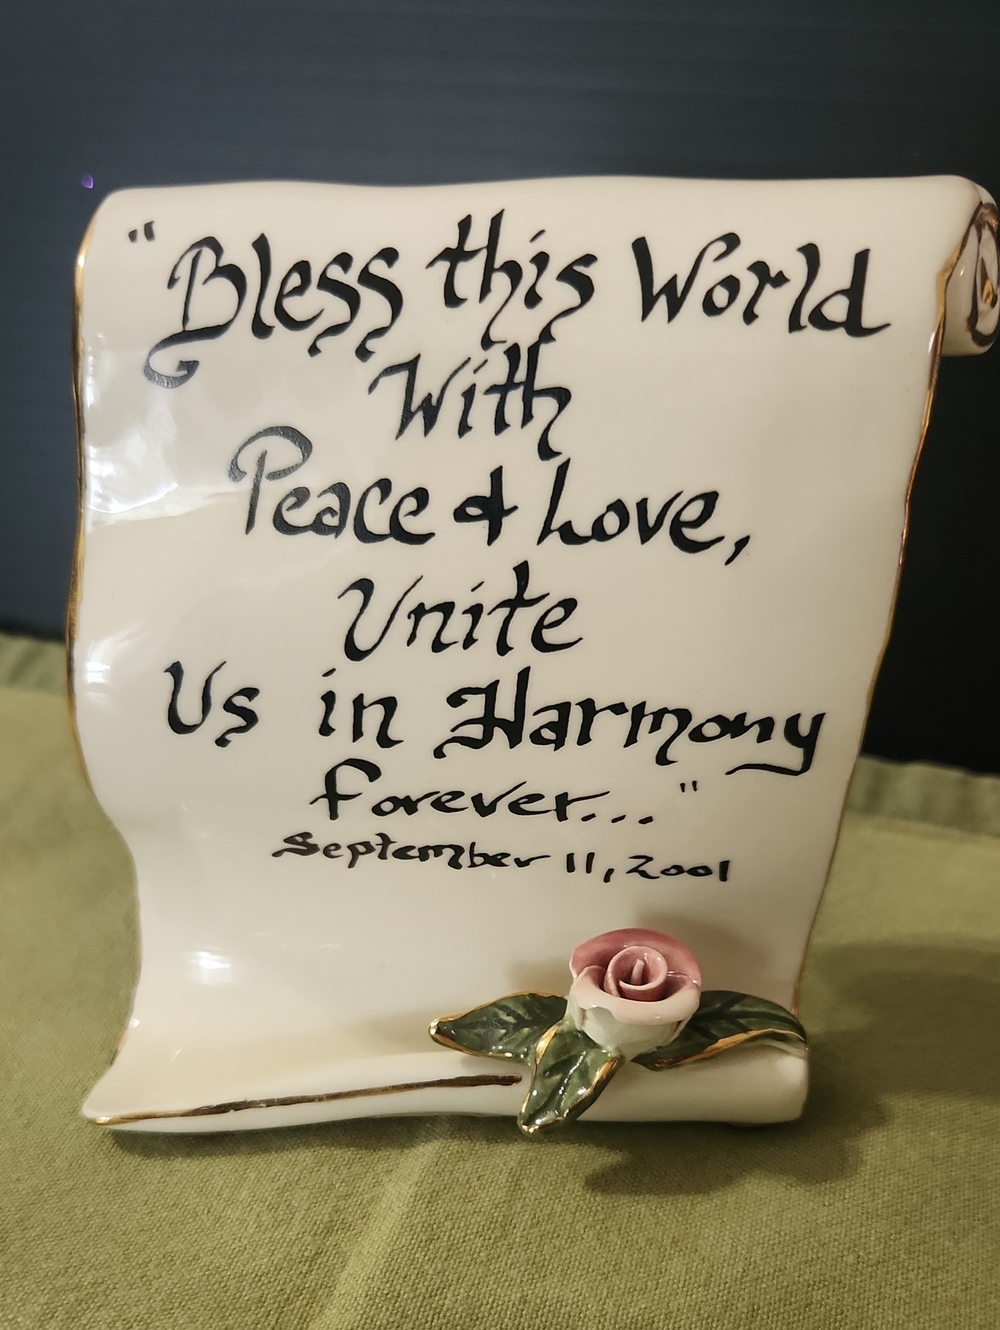 "Bless this World
With
Peace & Love,
Unite
Us in Harmony
forever..."
September 11, 2001